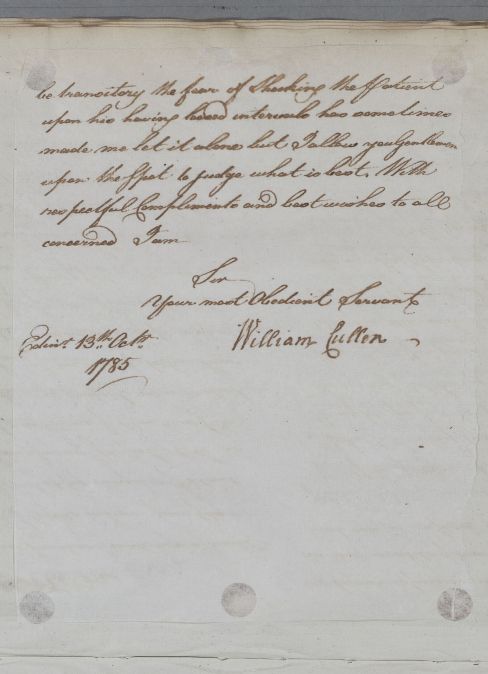 be transitory the fear of Shocking the Patient
upon his having lucid intervals has sometimes
made me let it alone but I allow you Gentlemen
upon the Spot to judge what is best. With
respectful Compliments and best wishes to all
concerned I am
Sir
Your most Obedient Servant
Edinr. 13th. Octr. William Cullen
1785